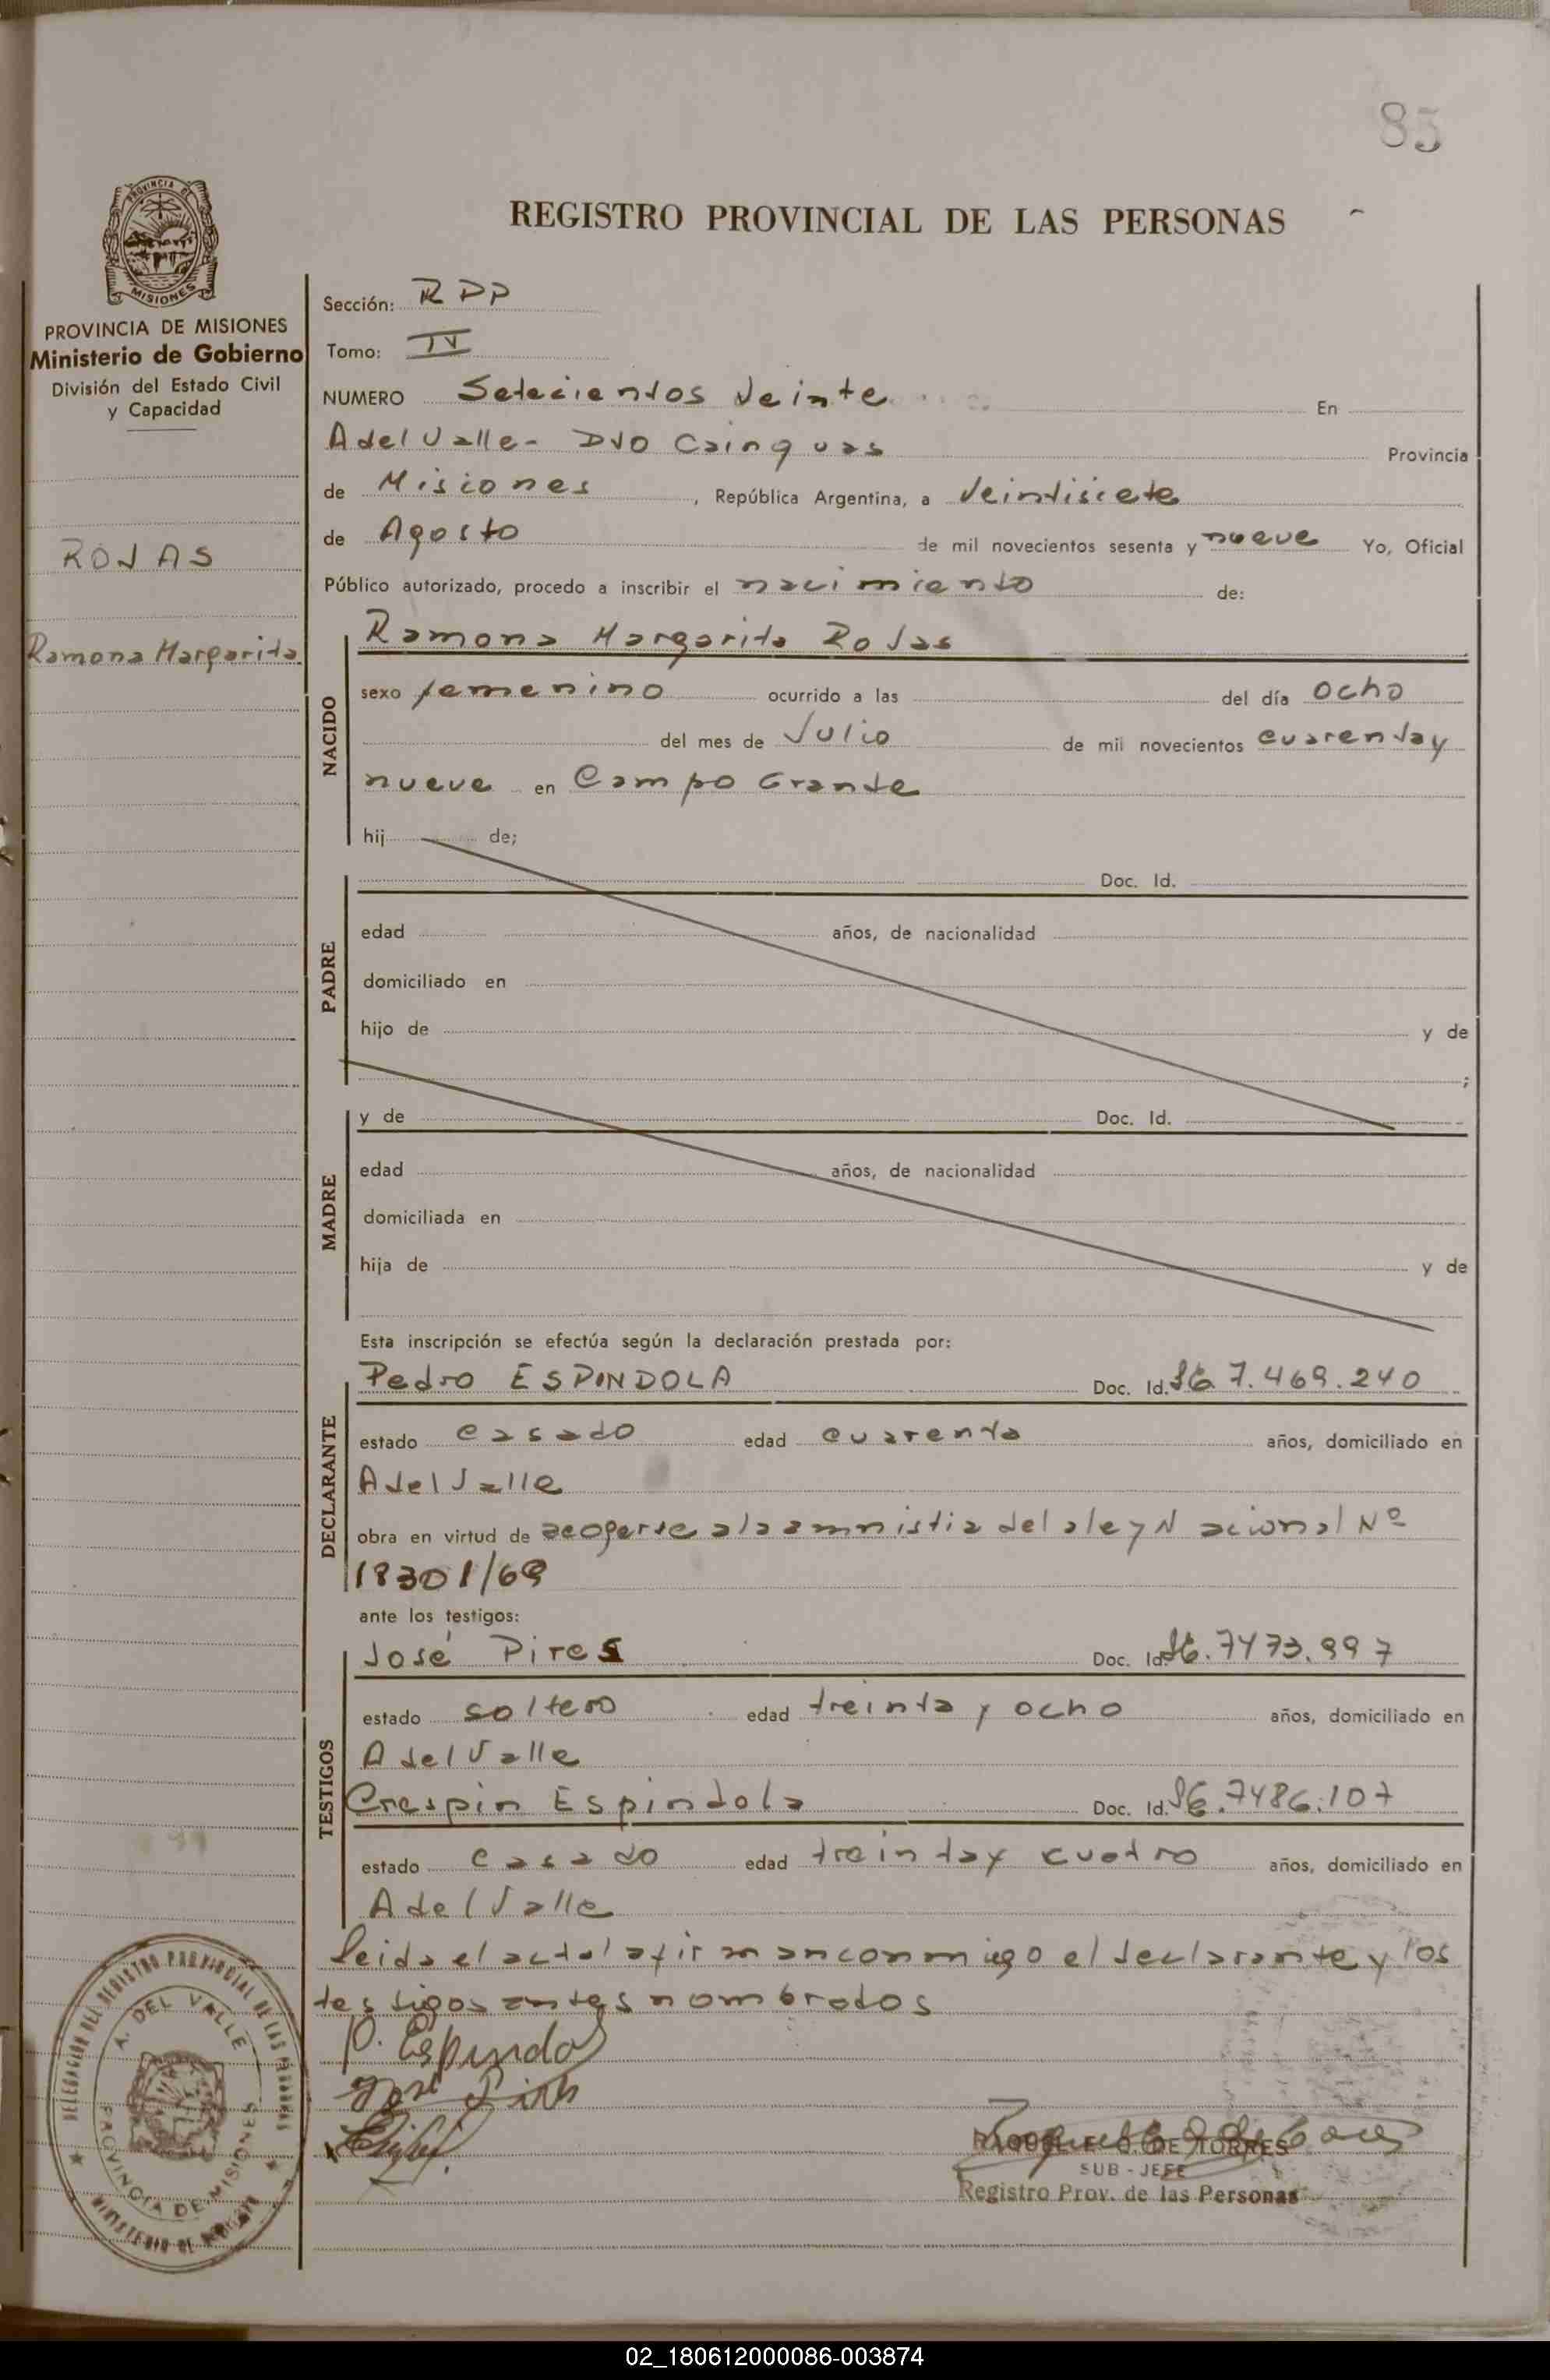 85
REGISTRO PROVINCIAL DE LAS PERSONAS
PROVINCIA DE MISIONES
PROVINCIA DE MISIONES
Ministerio de Gobierno
División del Estado Civil
y Capacidad
ROJAS
Ramona Margarita
Sección: RDP
Tomo: IV
NUMERO Setecientos Veinte En
A del Valle - Dto Cainguas Provincia
de Misiones, República Argentina, a Veintisiete
de Agosto de mil novecientos sesenta y nueve Yo, Oficial
Público autorizado, procedo a inscribir el nacimiento de:
NACIDO
Ramona Margarita Rojas
sexo femenino ocurrido a las del día ocho
del mes de Julio de mil novecientos cuarenta y
nueve en Campo Grande
hij de;
PADRE
Doc. Id.
edad años, de nacionalidad
domiciliado en
hijo de y de
;
MADRE
y de Doc. Id.
edad años, de nacionalidad
domiciliada en
hija de y de
Esta inscripción se efectúa según la declaración prestada por:
DECLARANTE
Pedro ESPINDOLA Doc. Id. 7.469.240
estado casado edad cuarenta años, domiciliado en
A del Valle
obra en virtud de acogerse a la amnistia de la ley Nacional Nº
18301/69
ante los testigos:
TESTIGOS
José Pires Doc. Id. 7473.997
estado soltero edad treinta y ocho años, domiciliado en
A del Valle
Crespin Espindola Doc. Id. 7486.107
estado casado edad treinta y cuatro años, domiciliado en
A del Valle
leida el acta la firman conmigo el declarante y los
testigos antes nombrados
P. Espindola
José Pires
DELEGACION DEL REGISTRO PROVINCIAL DE LAS PERSONAS
A. DEL VALLE
PROVINCIA DE MISIONES
MINISTERIO DE GOBIERNO
DE TORRES
SUB - JEFE
Registro Prov. de las Personas
02_180612000086-003874